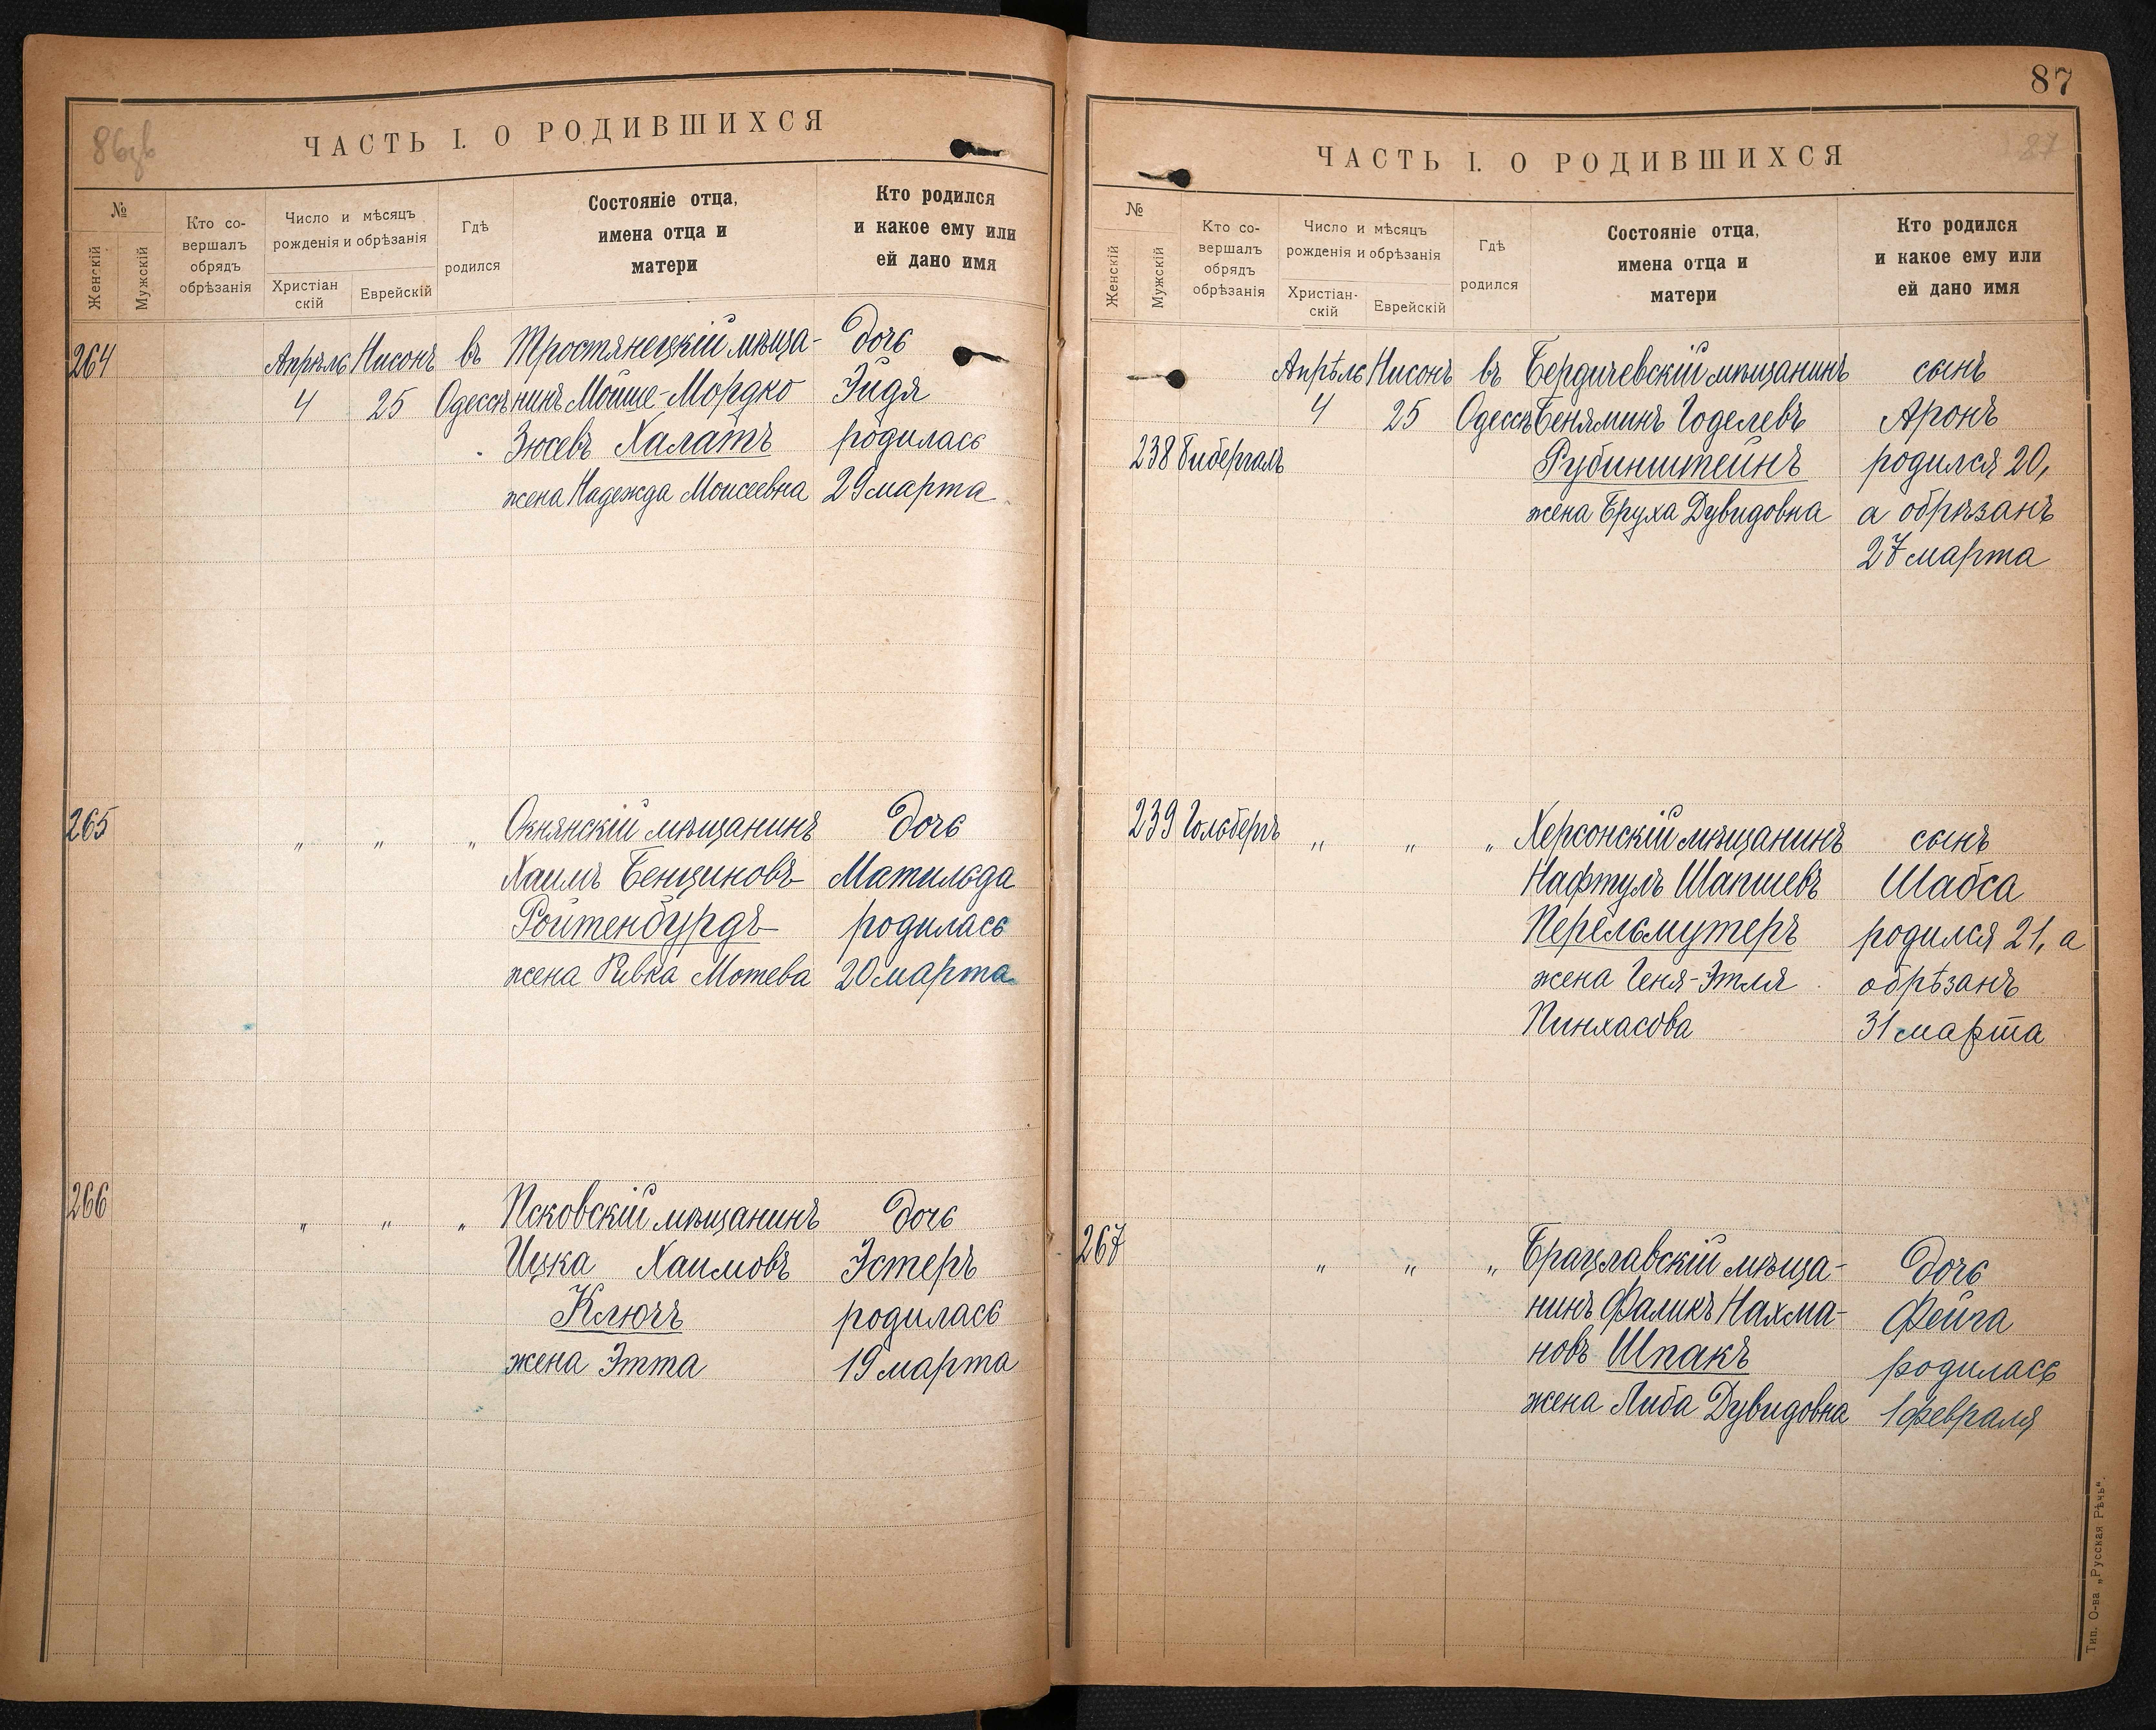 86об
ЧАСТЬ I. О РОДИВШИХСЯ
№
Женскій
Мужскій
Кто со-
вершалъ
обрядъ
обрѣзанія
Число и мѣсяцъ
рожденія и обрѣзанія
Христіан
скій
Еврейскій
Гдѣ
родился
Состояніе отца,
имена отца и
матери
Кто родился
и какое ему или
ей дано имя
264 Апрѣль Нисонъ въ Тростянецкій мѣща- дочь
4 25 Одессѣ нинъ Мойше-Мордко Эйдя
Зюсевъ Халатъ родилась
жена Надежда Моисеевна 29 марта
265 „ „ „ Окнянскій мѣщанинъ дочь
Хаимъ Бенциновъ Матильда
Ройтенбурдъ родилась
жена Ривка Мотева 20 марта
266 „ „ „ Псковскій мѣщанинъ дочь
Ицка Хаимовъ Эстеръ
Ключъ родилась
жена Этта 19 марта
87
87
ЧАСТЬ I. О РОДИВШИХСЯ
№
Женскій
Мужскій
Кто со-
вершалъ
обрядъ
обрѣзанія
Число и мѣсяцъ
рожденія и обрѣзанія
Христіан-
скій
Еврейскій
Гдѣ
родился
Состояніе отца,
имена отца и
матери
Кто родился
и какое ему или
ей дано имя
Апрѣль Нисонъ въ Бердичевскій мѣщанинъ сынъ
4 25 Одессѣ Беняминъ Годелевъ Аронъ
238 Бибергалъ Рубинштейнъ родился 20,
жена Бруха Дувидовна а обрѣзанъ
27 марта
239 Гольбергъ „ „ „ Херсонскій мѣщанинъ сынъ
Нафтулъ Шапшевъ Шабса
Перельмутеръ родился 21, а
жена Геня-Этля обрѣзанъ
Пинхасова 31 марта
267 „ „ „ Брацлавскій мѣща- дочь
нинъ Фаликъ Нахма- Фейга
новъ Шпакъ родилась
жена Либа Дувидовна 1 февраля
Тип. О-ва „Русская Рѣчь".